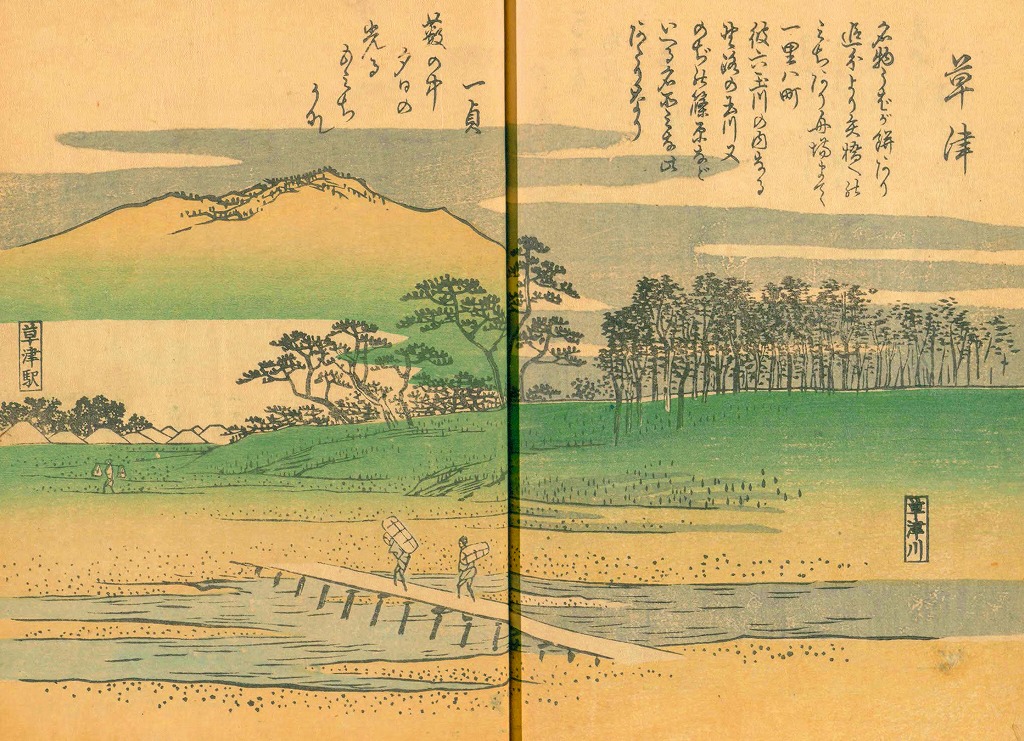 草津
名物うばが餅あり
追分より矢橋へ行
みちあり舟場まで
一里八町
彼六玉川の内なる
野路の玉川又
のぢ
いへる名所もみな此
あたりなり
一貞
藪の中
夕日の
光る
もみぢ
かな
草津駅
草津川